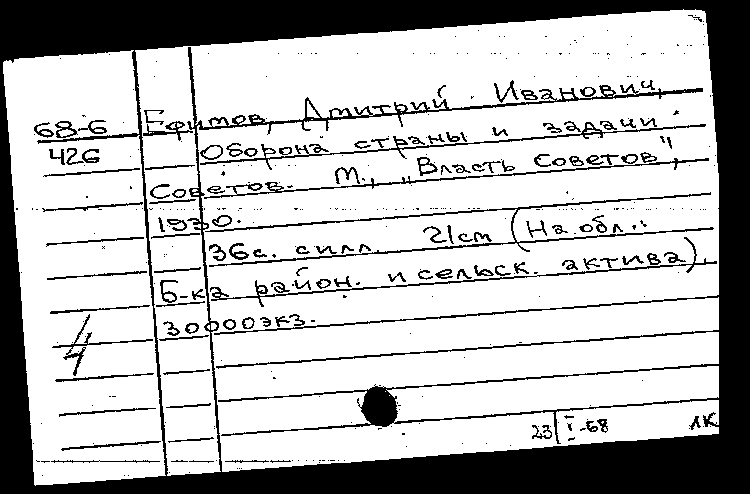 68-6 Ефимов, Дмитрий Иванович,
426 Оборона страны и задачи
Советов. М., „Власть Советов",
1930.
36с. силл. 21см (На обл.:
Б-ка район. и сельск. актива).
30000экз.
4
23 I-68 ЛК